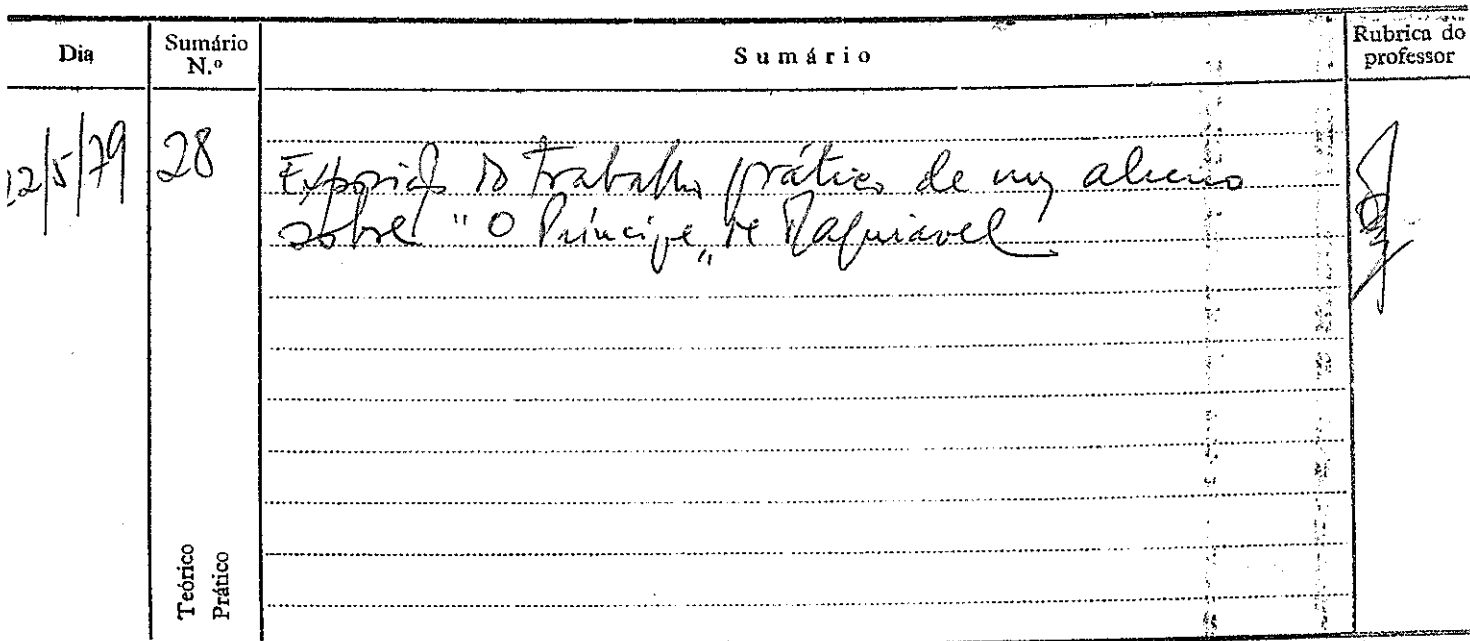 Dia
Sumário N.º
Sumário
Rubrica do professor
12/5/79
28
Exposição do trabalho prático de um aluno
sobre "O Príncipe" de Maquiavel
Teórico
Prático